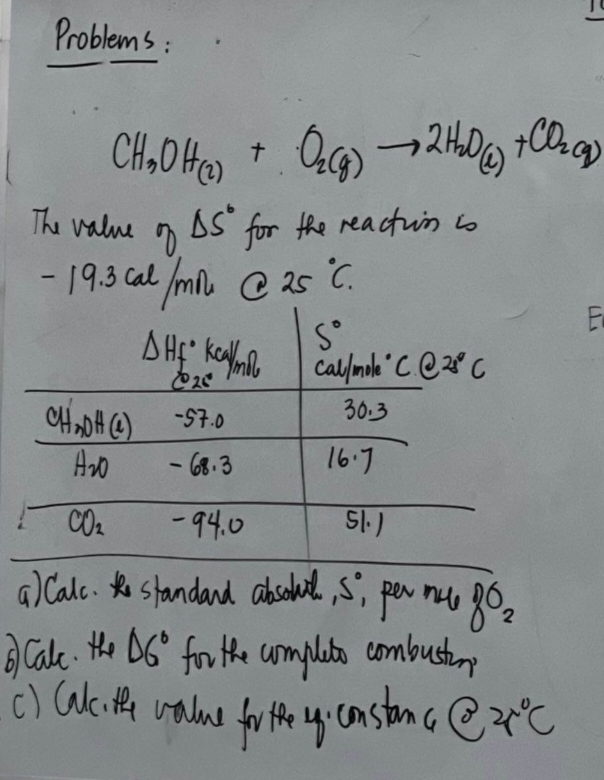 Problems:
CH3OH(l) + O2(g) → 2H2O(l) + CO2(g)
The value of ΔS° for the reaction is
- 19.3 cal/mol @ 25 °C.
ΔHf° Kcal/mol @ 25° S° cal/mole °C @ 25° C
CH3OH(l) -57.0 30.3
H2O - 68.3 16.7
CO2 - 94.0 51.1
a) Calc. the standard absolute, S°, per mole of O2
b) Calc. the ΔG° for the complete combustion
c) Calc. the value for the eq. constant @ 25°C